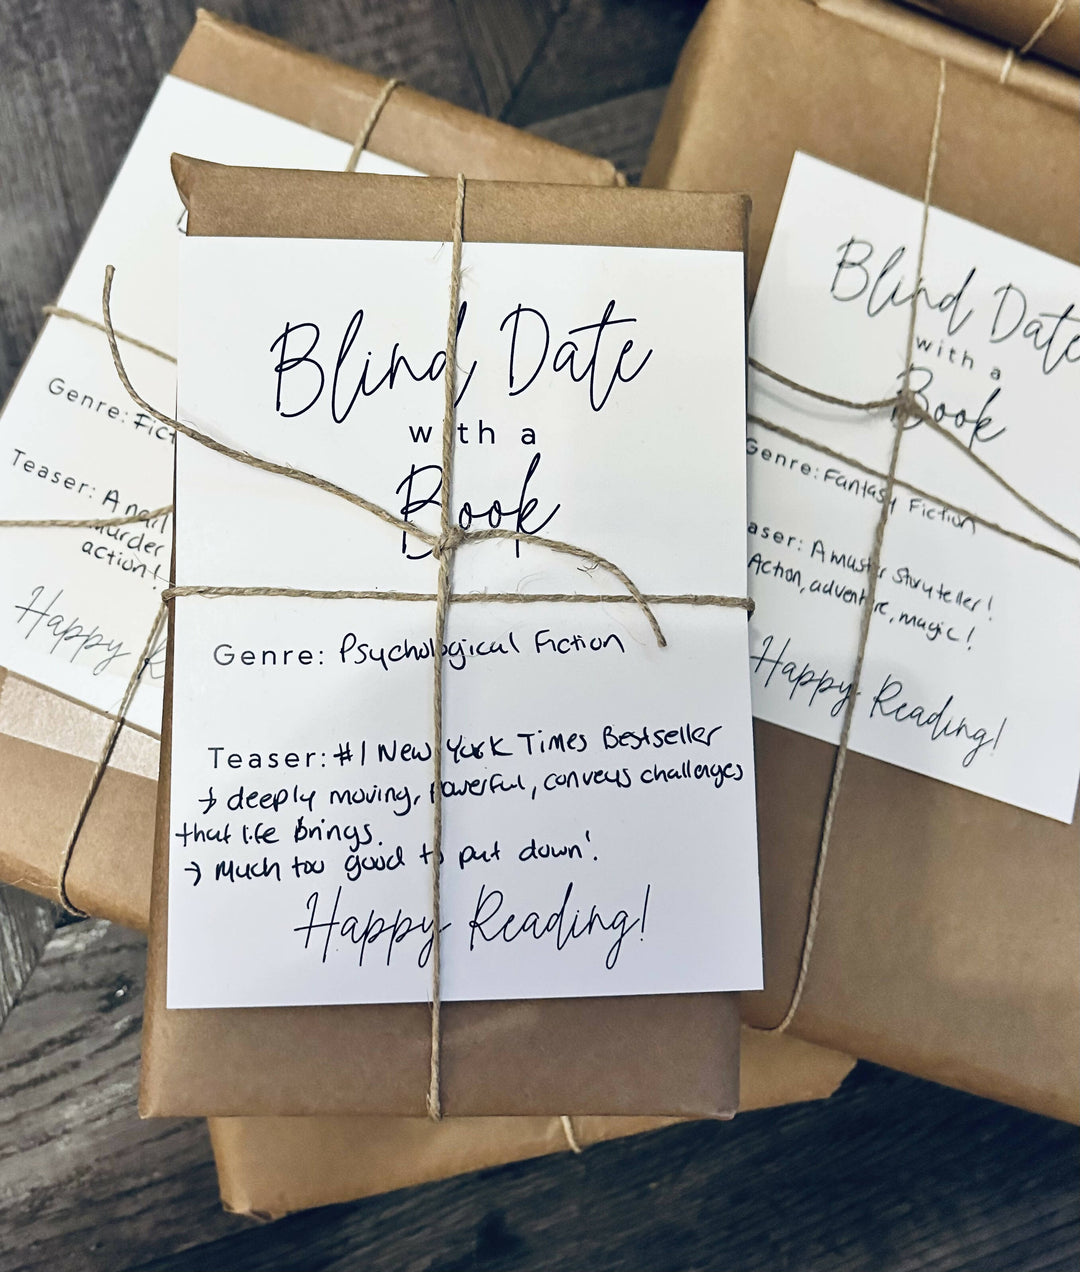 Blind Date
with a
Book
Genre: Psychological Fiction
Teaser: #1 New York Times Bestseller
→ deeply moving, powerful, conveys challenges
that life brings.
→ Much too good to put down!
Happy Reading!
Genre: Fict
Teaser: A nail
murder
action!
Happy R
Blind Date
with a
Book
Genre: Fantasy Fiction
aser: A master Storyteller!
Action, adventure, magic!
Happy Reading!